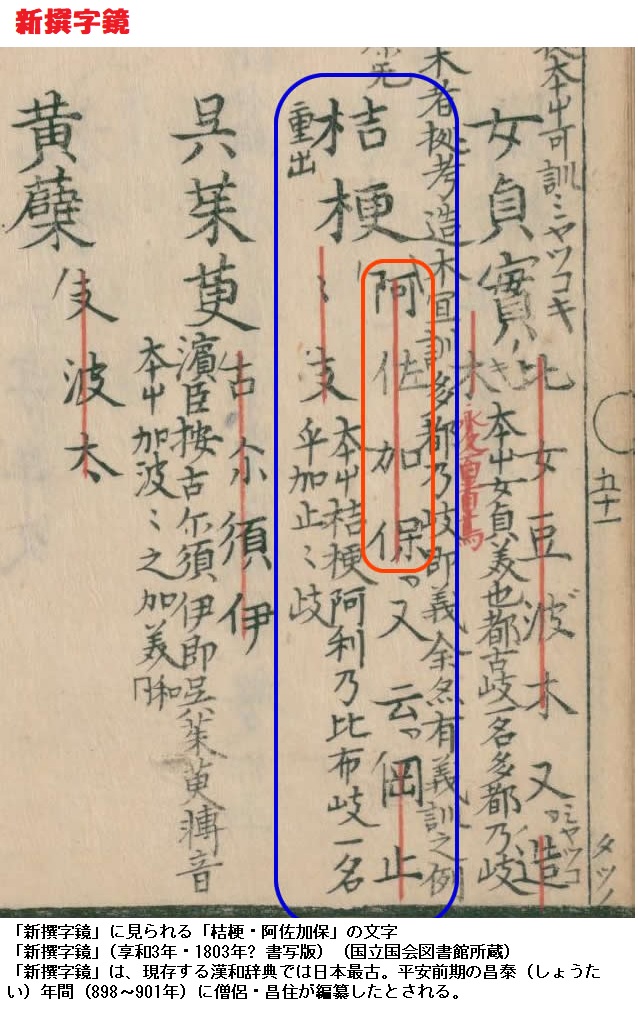 新撰字鏡
五十一
タツノ
本屮可訓ミヤツコキ
女貞實
比女豆波木又造
ミヤツコ
木
本屮女貞美也都古岐一名多都乃岐
考造木宜訓多都乃岐即義
有義訓之例
桔梗
重出
阿佐加保又云岡止
〻支
本屮桔梗阿利乃比布岐一名
乎加止〻岐
呉茱萸
古尓須伊
濱臣按古尓須伊即呉茱萸轉音
本屮加波〻之加美
黄蘗
支波太
「新撰字鏡」に見られる「桔梗・阿佐加保」の文字
「新撰字鏡」(享和3年・1803年? 書写版)(国立国会図書館所蔵)
「新撰字鏡」は、現存する漢和辞典では日本最古。平安前期の昌泰(しょうた
い)年間(898～901年)に僧侶・昌住が編纂したとされる。